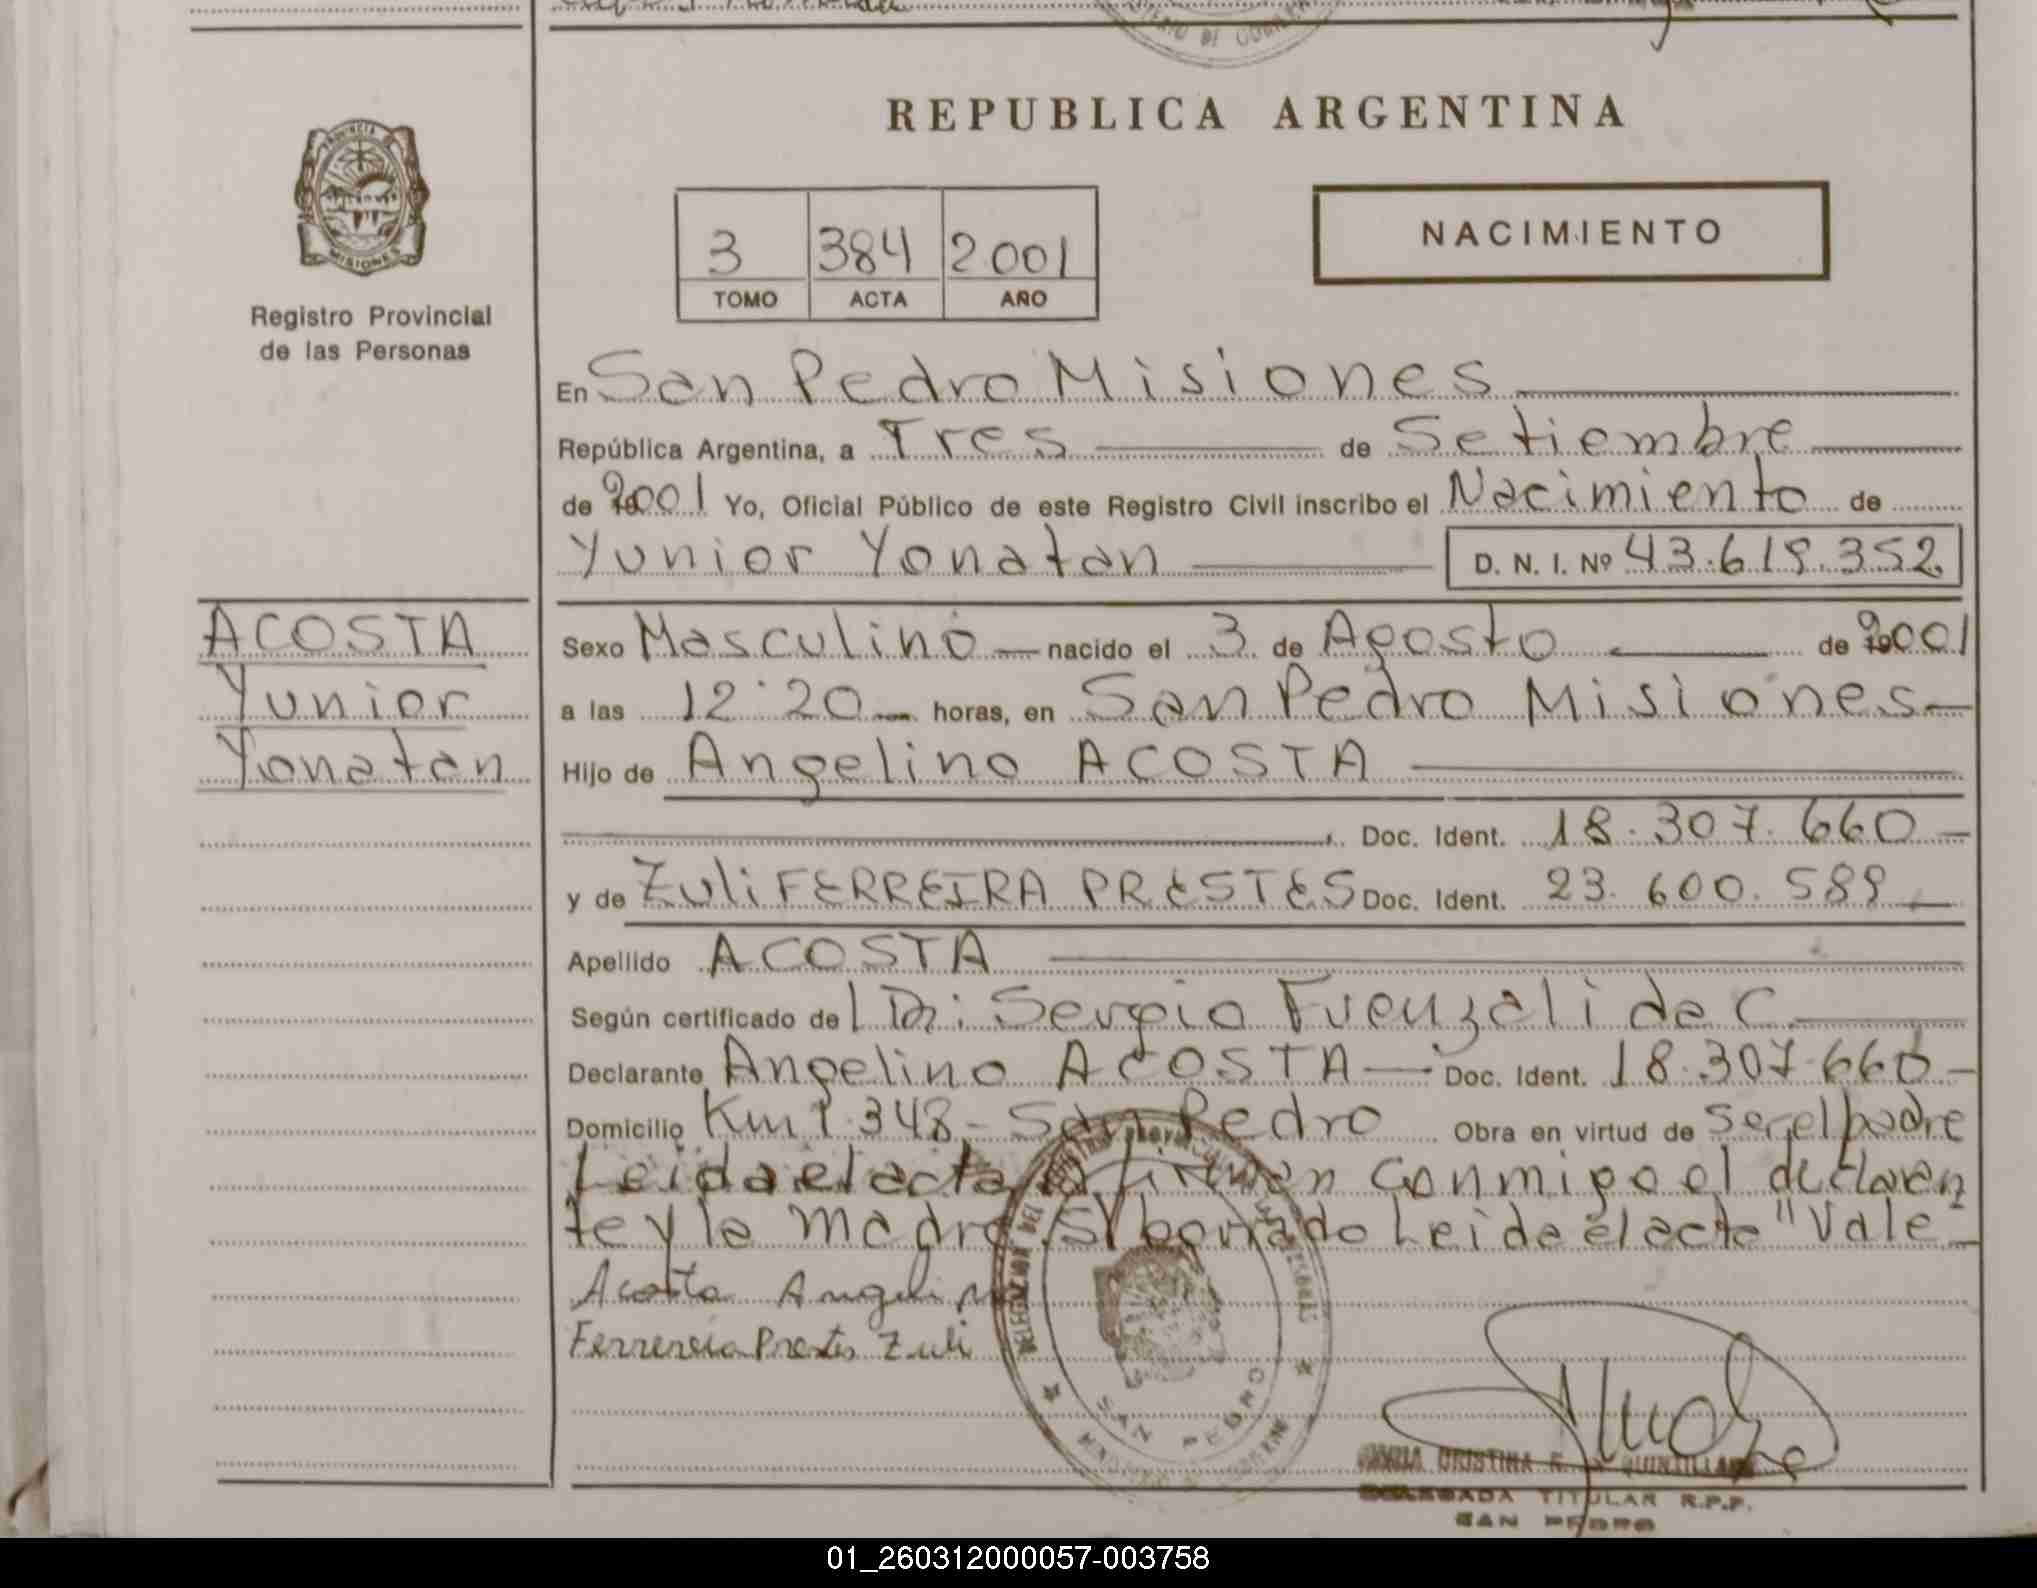 REPUBLICA ARGENTINA
PROVINCIA
MISIONES
Registro Provincial
de las Personas
NACIMIENTO
3 384 2001
TOMO ACTA AÑO
En San Pedro Misiones
República Argentina, a Tres de Setiembre
de 2001 Yo, Oficial Público de este Registro Civil inscribo el Nacimiento de
Yunior Yonatan D. N. I. Nº 43.619.352
ACOSTA
Yunior
Yonatan
Sexo Masculino nacido el 3 de Agosto de 2001
a las 12:20 horas, en San Pedro Misiones
Hijo de Angelino ACOSTA
Doc. Ident. 18.307.660
y de Zuli FERREIRA PRESTES Doc. Ident. 23.600.589
Apellido ACOSTA
Según certificado del Dr: Sergio Fuenzalida C
Declarante Angelino ACOSTA Doc. Ident. 18.307.660
Domicilio Km 1.348 - San Pedro Obra en virtud de ser el padre
Leida el acta la firman conmigo el declaran
te y la madre S/ borrado Leida el acta "Vale
Acosta Angelino
Ferrereia Prestes Zuli
SAN PEDRO
CRISTINA
DELEGADA TITULAR R.P.P.
SAN PEDRO
01_260312000057-003758